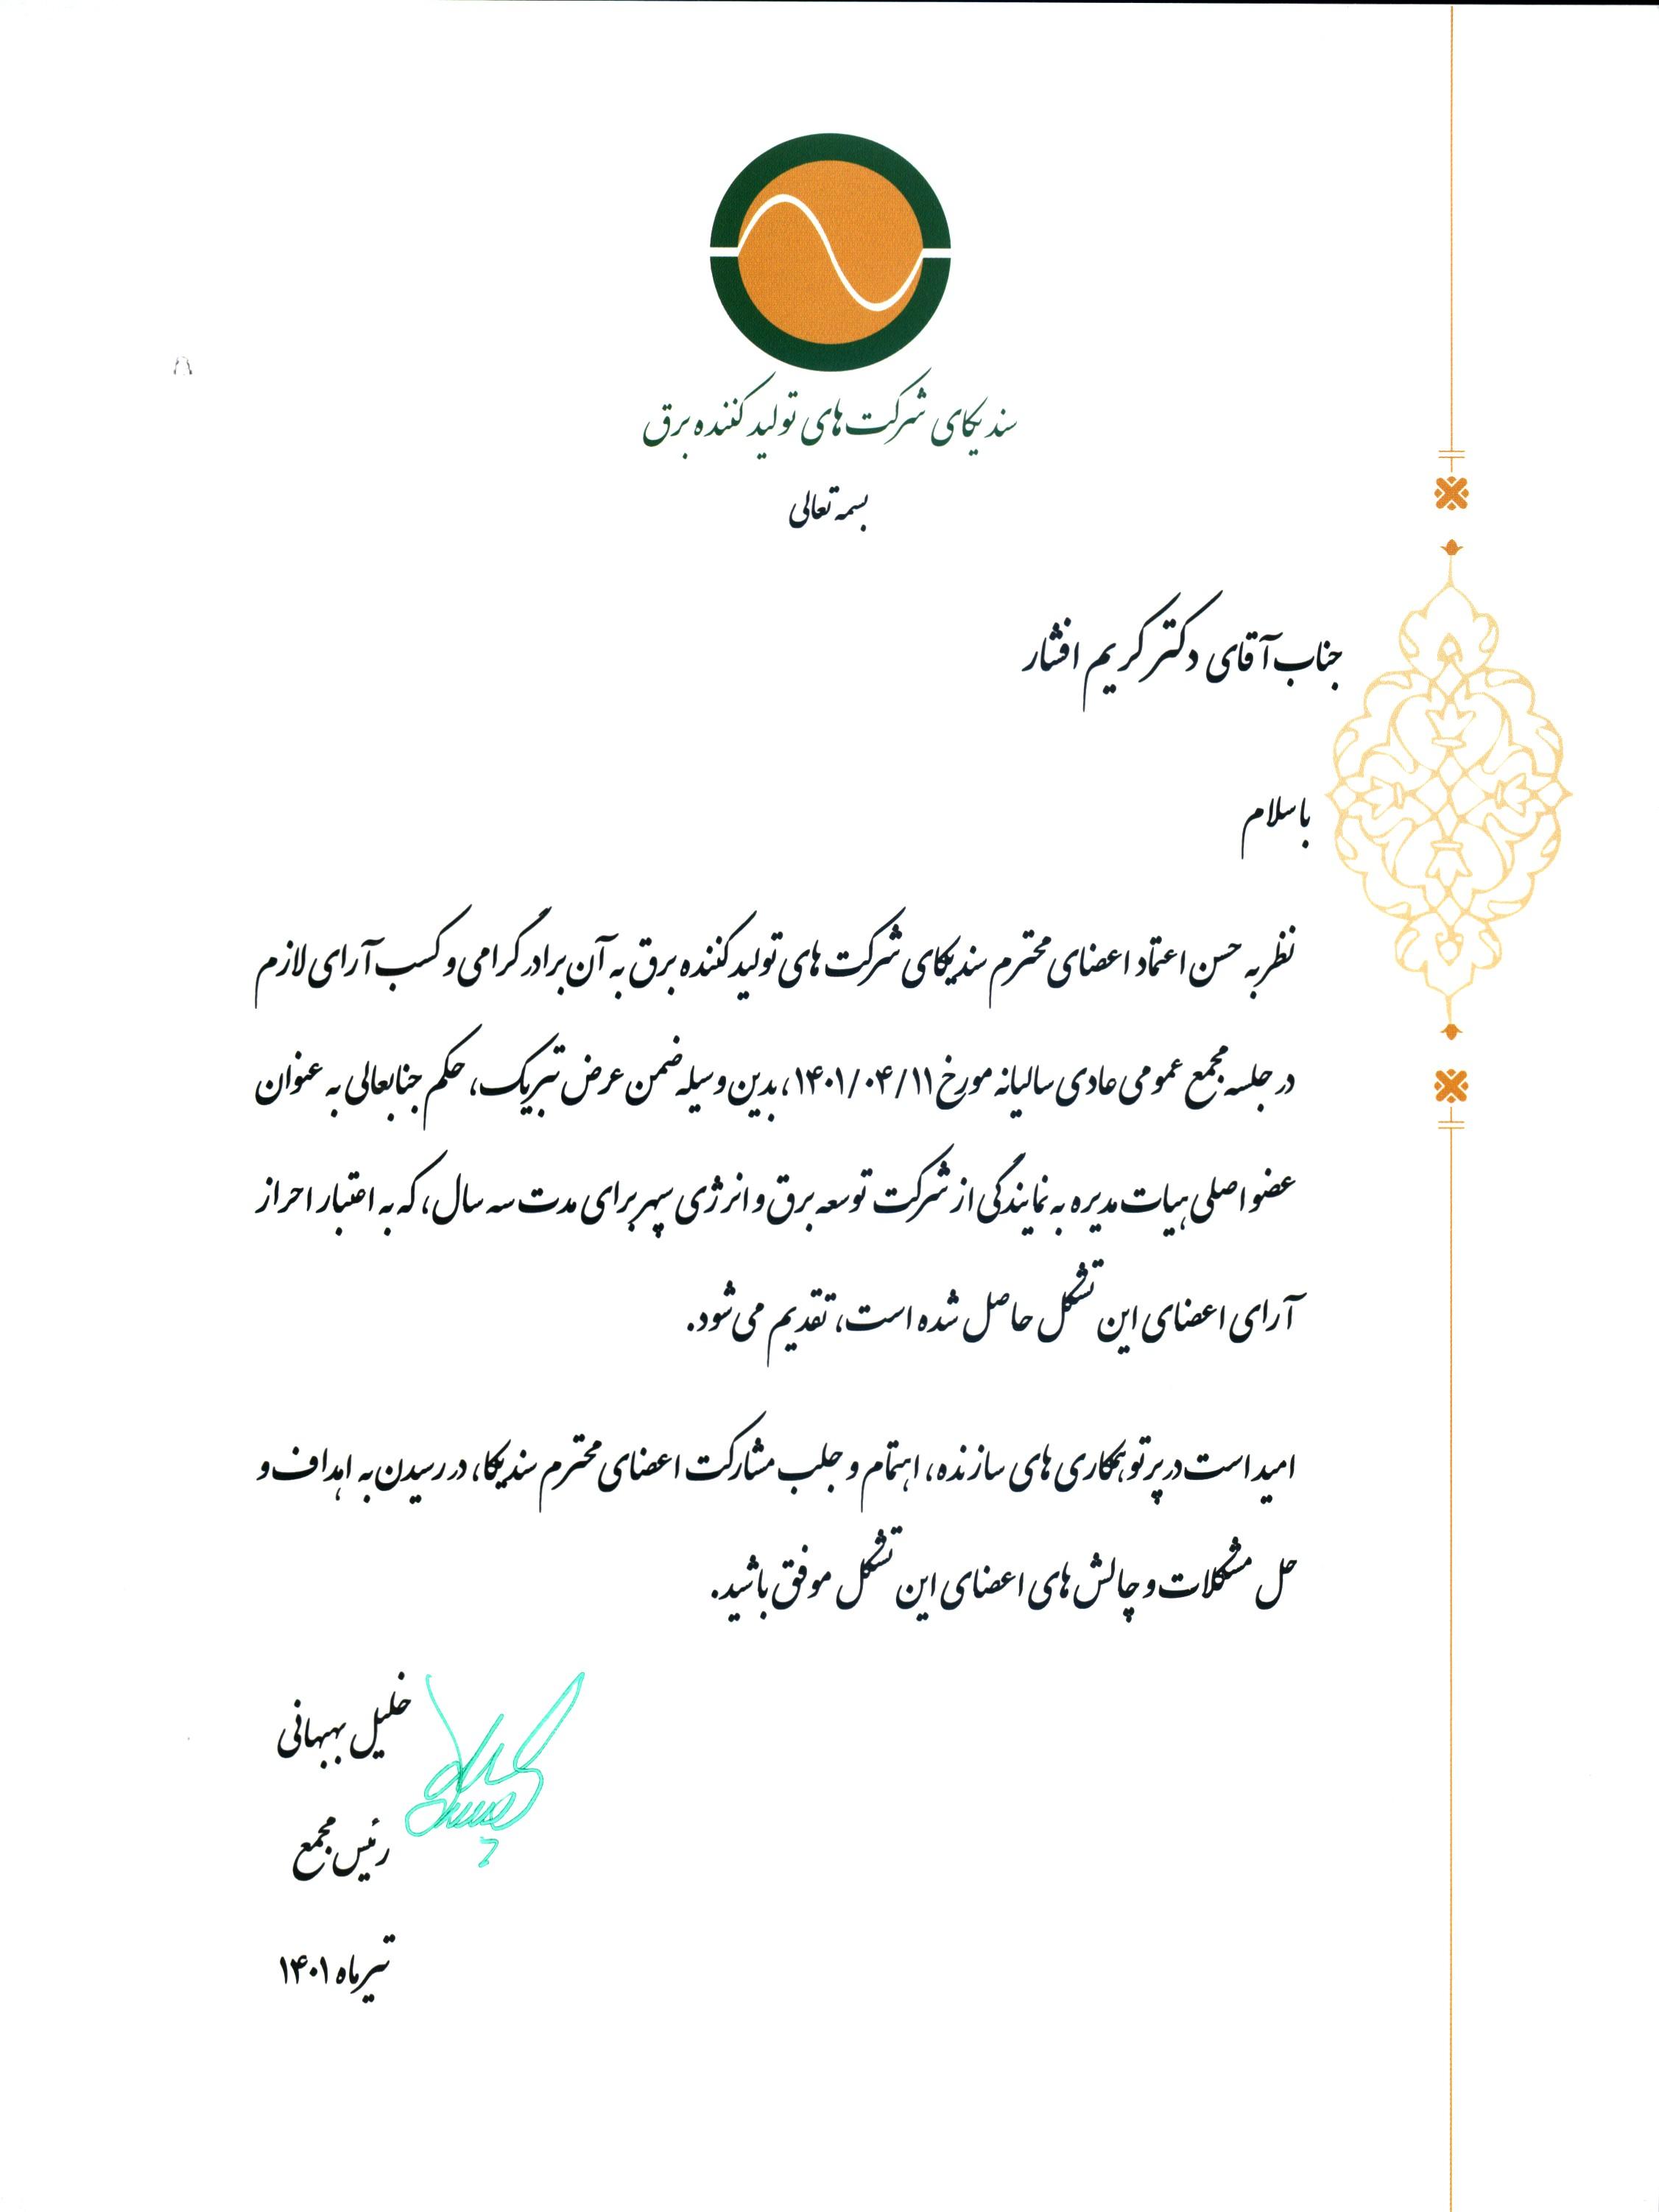 سندیکای شرکت های تولید کننده برق
بسمه تعالی
جناب آقای دکتر کریم افشار
با سلام
نظر به حسن اعتماد اعضای محترم سندیکای شرکت های تولید کننده برق به آن برادر گرامی و کسب آرای لازم
در جلسه مجمع عمومی عادی سالیانه مورخ ۱۴۰۱/۰۴/۱۱، بدین وسیله ضمن عرض تبریک، حکم جنابعالی به عنوان
عضو اصلی هیات مدیره به نمایندگی از شرکت توسعه برق و انرژی سپهر برای مدت سه سال، که به اعتبار احراز
آرای اعضای این تشکل حاصل شده است، تقدیم می شود.
امید است در پرتو همکاری های سازنده، اهتمام و جلب مشارکت اعضای محترم سندیکا، در رسیدن به اهداف و
حل مشکلات و چالش های اعضای این تشکل موفق باشید.
خلیل بهبهانی
رئیس مجمع
تیر ماه ۱۴۰۱